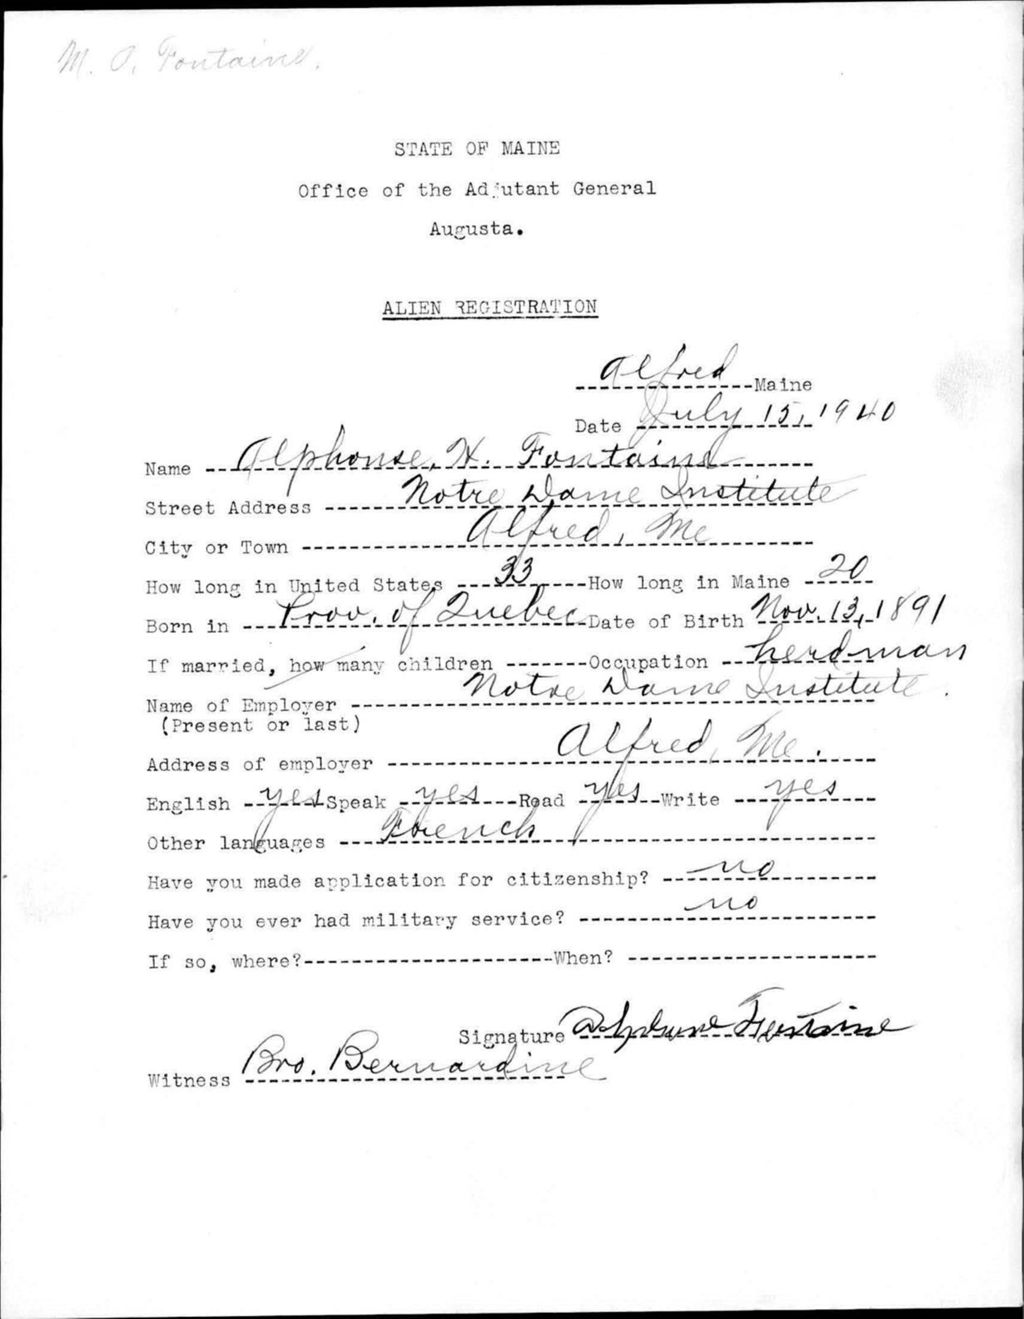 M. O. Fontaine.
STATE OF MAINE
Office of the Adjutant General
Augusta.
ALIEN REGISTRATION
Alfred Maine
Date July 15, 1940
Name Alphonse, H. Fontaine
Street Address Notre Dame Institute
City or Town Alfred, Me
How long in United States 33 How long in Maine 20
Born in Prov. of Quebec Date of Birth Nov. 13, 1891
If married, how many children Occupation herdman
Name of Employer Notre Dame Institute.
(Present or last)
Address of employer Alfred, Me.
English yes Speak yes Read yes Write yes
Other languages French
Have you made application for citizenship? no
Have you ever had military service? no
If so, where? When?
Signature Alphonse Fontaine
Witness Bro. Bernardine